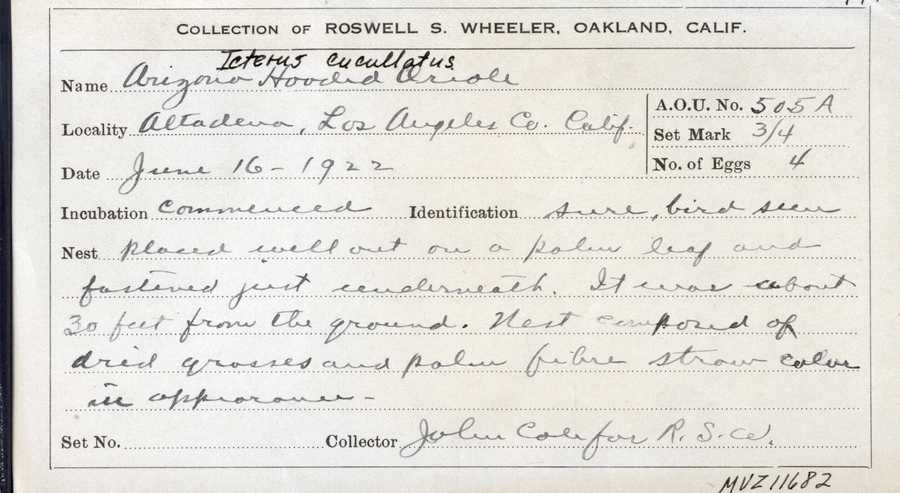 COLLECTION OF ROSWELL S. WHEELER, OAKLAND, CALIF.
Icterus cucullatus
Name Arizona Hooded Oriole
A.O.U. No. 505A
Locality Altadena, Los Angeles Co. Calif.
Set Mark 3/4
Date June 16 - 1922
No. of Eggs 4
Incubation commenced Identification sure, bird seen
Nest placed well out on a palm leaf and
fastened just underneath. It was about
30 feet from the ground. Nest composed of
dried grasses and palm fibre straw color
in appearance -
Set No. Collector John Cole for R.S.W.
MVZ 11682